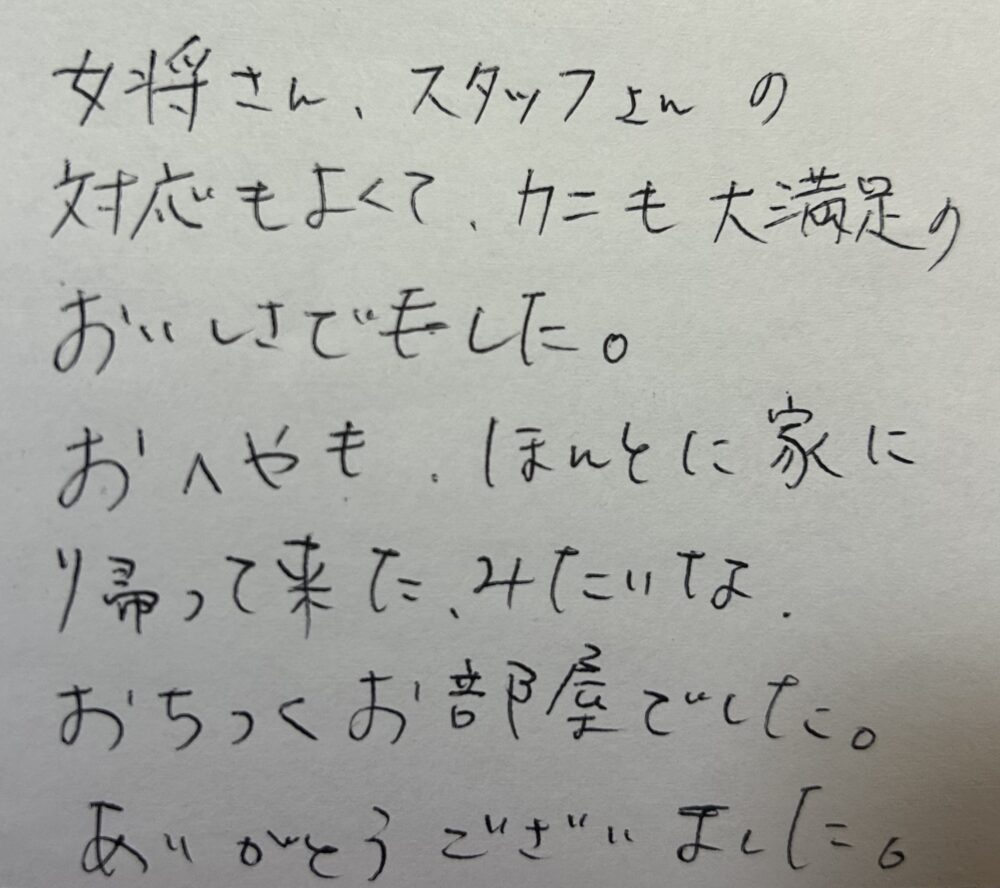 女将さん、スタッフさんの
対応もよくて、カニも大満足の
おいしさでした。
おへやも、ほんとに家に
帰って来た、みたいな、
おちつくお部屋でした。
ありがとうございました。